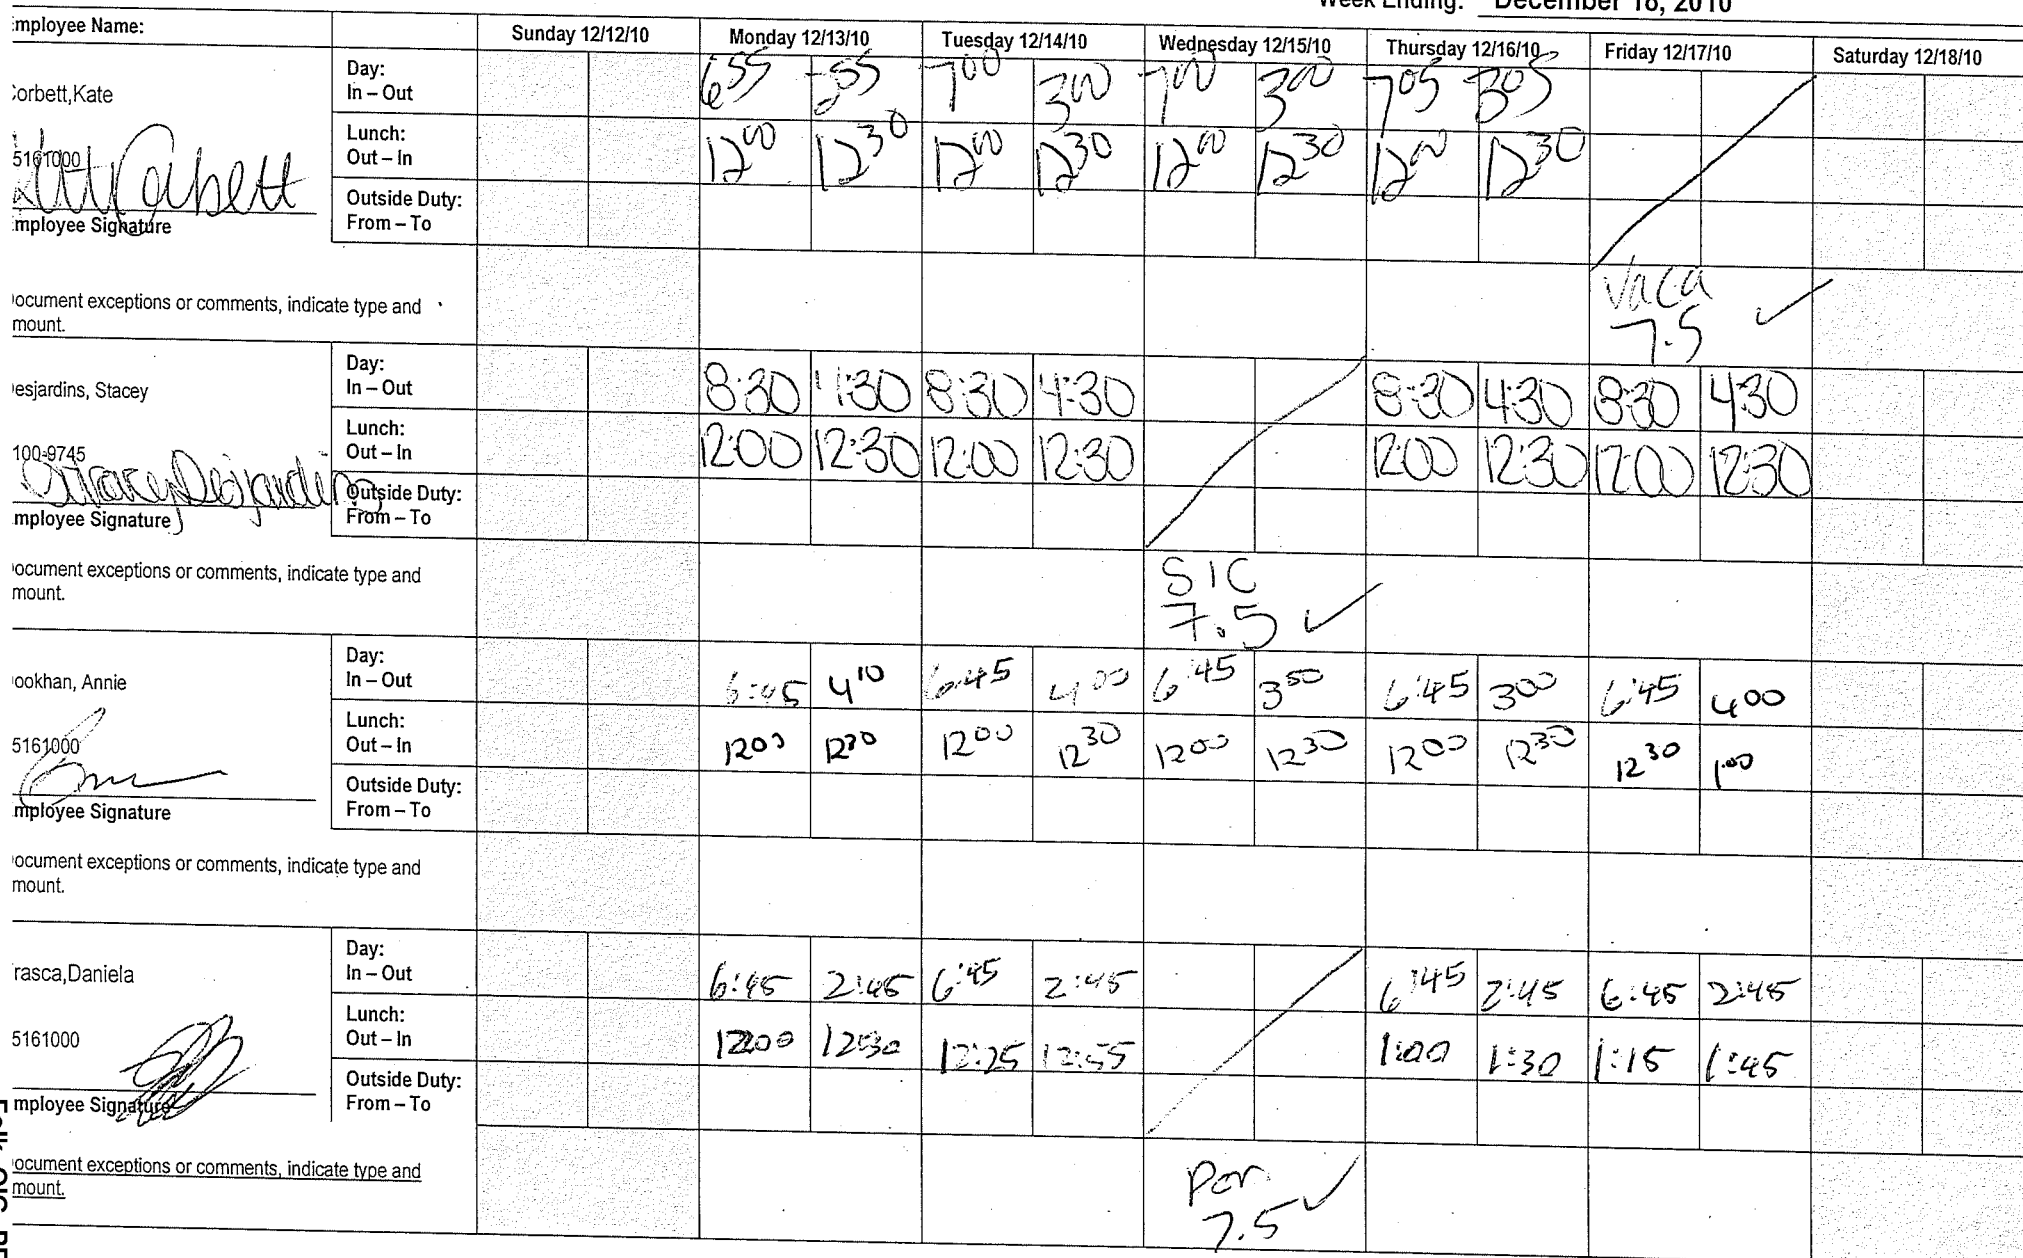 Week Ending: December 18, 2010
mployee Name: Sunday 12/12/10 Monday 12/13/10 Tuesday 12/14/10 Wednesday 12/15/10 Thursday 12/16/10 Friday 12/17/10 Saturday 12/18/10
Corbett,Kate
Day: In – Out 6 55 2 55 7 00 3 00 7 00 3 00 7 05 3 05
Lunch: Out – In 12 00 12 30 12 00 12 30 12 00 12 30 12 00 12 30
5161000
Kate Corbett
mployee Signature
Outside Duty: From – To
ocument exceptions or comments, indicate type and
mount.
Vaca
7.5 ✓
esjardins, Stacey
Day: In – Out 8:30 4:30 8:30 4:30 8:30 4:30 8:30 4:30
Lunch: Out – In 12:00 12:30 12:00 12:30 12:00 12:30 12:00 12:30
100-9745
Stacey Desjardins
mployee Signature
Outside Duty: From – To
ocument exceptions or comments, indicate type and
mount.
SIC
7.5 ✓
ookhan, Annie
Day: In – Out 6:45 4 10 6:45 4 00 6:45 3 50 6:45 3 00 6:45 4 00
Lunch: Out – In 12 00 12 30 12 00 12 30 12 00 12 30 12 00 12 30 12 30 1:00
5161000
mployee Signature
Outside Duty: From – To
ocument exceptions or comments, indicate type and
mount.
rasca,Daniela
Day: In – Out 6:45 2:45 6:45 2:45 6:45 2:45 6:45 2:45
Lunch: Out – In 12:00 12:30 12:25 12:55 1:00 1:30 1:15 1:45
5161000
mployee Signature
Outside Duty: From – To
ocument exceptions or comments, indicate type and
mount.
Per
7.5 ✓